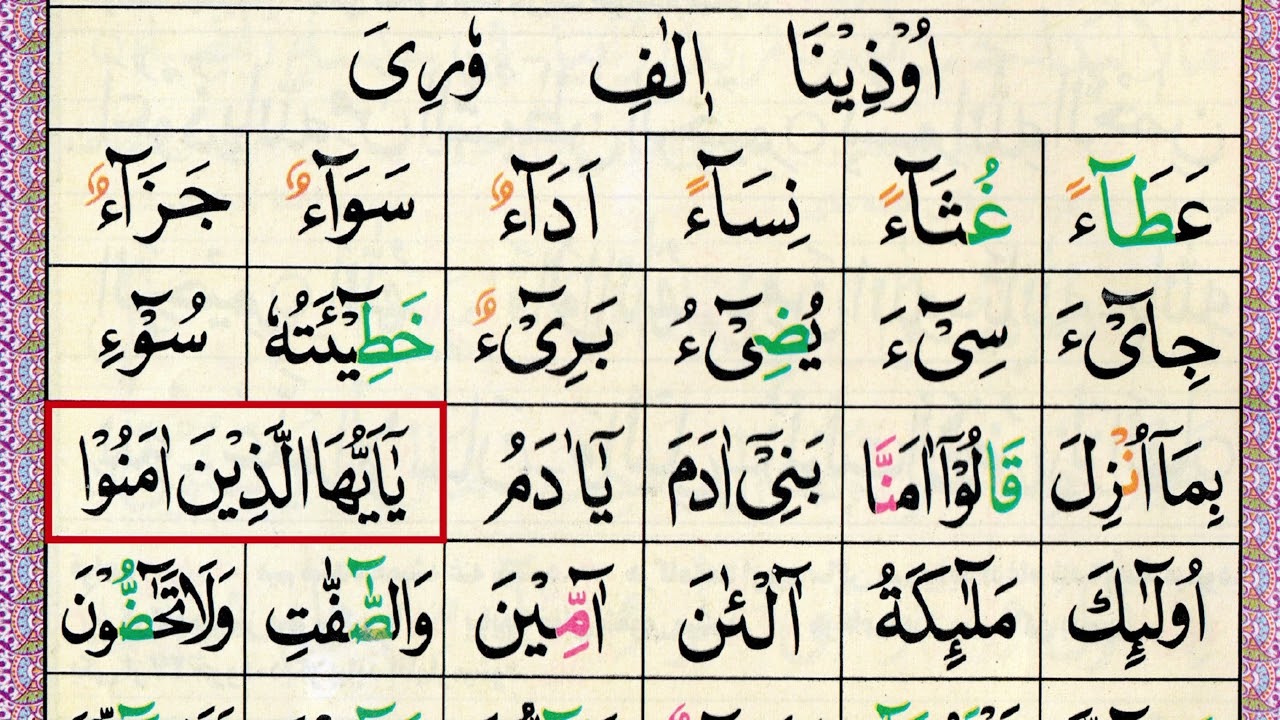 اُوْذِيْنَا اِلٰفِ وٗرِیَ
عَطَآءً غُثَآءً نِسَآءً اَدَآءٌ سَوَآءٌ جَزَآءٌ
جِایْٓءَ سِیْٓءَ يُضِیْٓءُ بَرِیْٓءٌ خَطِيْٓئَتُهٗ سُوْٓءِ
بِمَآ اُنْزِلَ قَالُوْٓا اٰمَنَّا بَنِیْٓ اٰدَمَ يٰٓاٰدَمُ يٰٓاَيُّهَا الَّذِيْنَ اٰمَنُوْا
اُولٰٓئِكَ مَلٰٓئِكَةُ آلْئٰنَ آٰمِّيْنَ وَالصّٰٓفّٰتِ وَلَا تَحٰٓضُّوْنَ